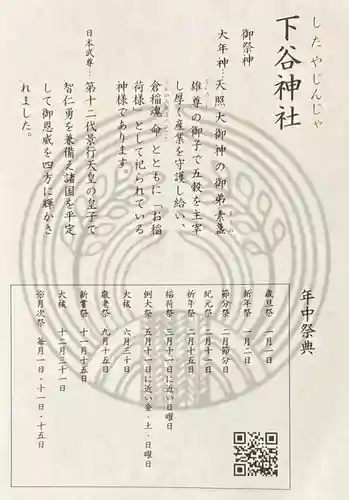 したやじんじゃ
下谷神社
御祭神
大年神…天照大御神の御弟素盞
雄尊の御子で五穀を主宰
し厚く産業を守護し給い、
倉稲魂命とともに「お稲
荷様」として祀られている
神様であります。
日本武尊…第十二代景行天皇の皇子で
智仁勇を兼備え諸国を平定
して御恩威を四方に輝かさ
れました。
年中祭典
歳旦祭 一月一日
新年祭 一月二日
節分祭 二月節分日
紀元祭 二月十一日
祈年祭 二月十五日
稲荷祭 三月十一日に近い日曜日
例大祭 五月十一日に近い金・土・日曜日
大祓 六月三十日
敬老祭 九月十五日
新嘗祭 十一月十五日
大祓 十二月三十一日
※月次祭 毎月一日・十一日・十五日